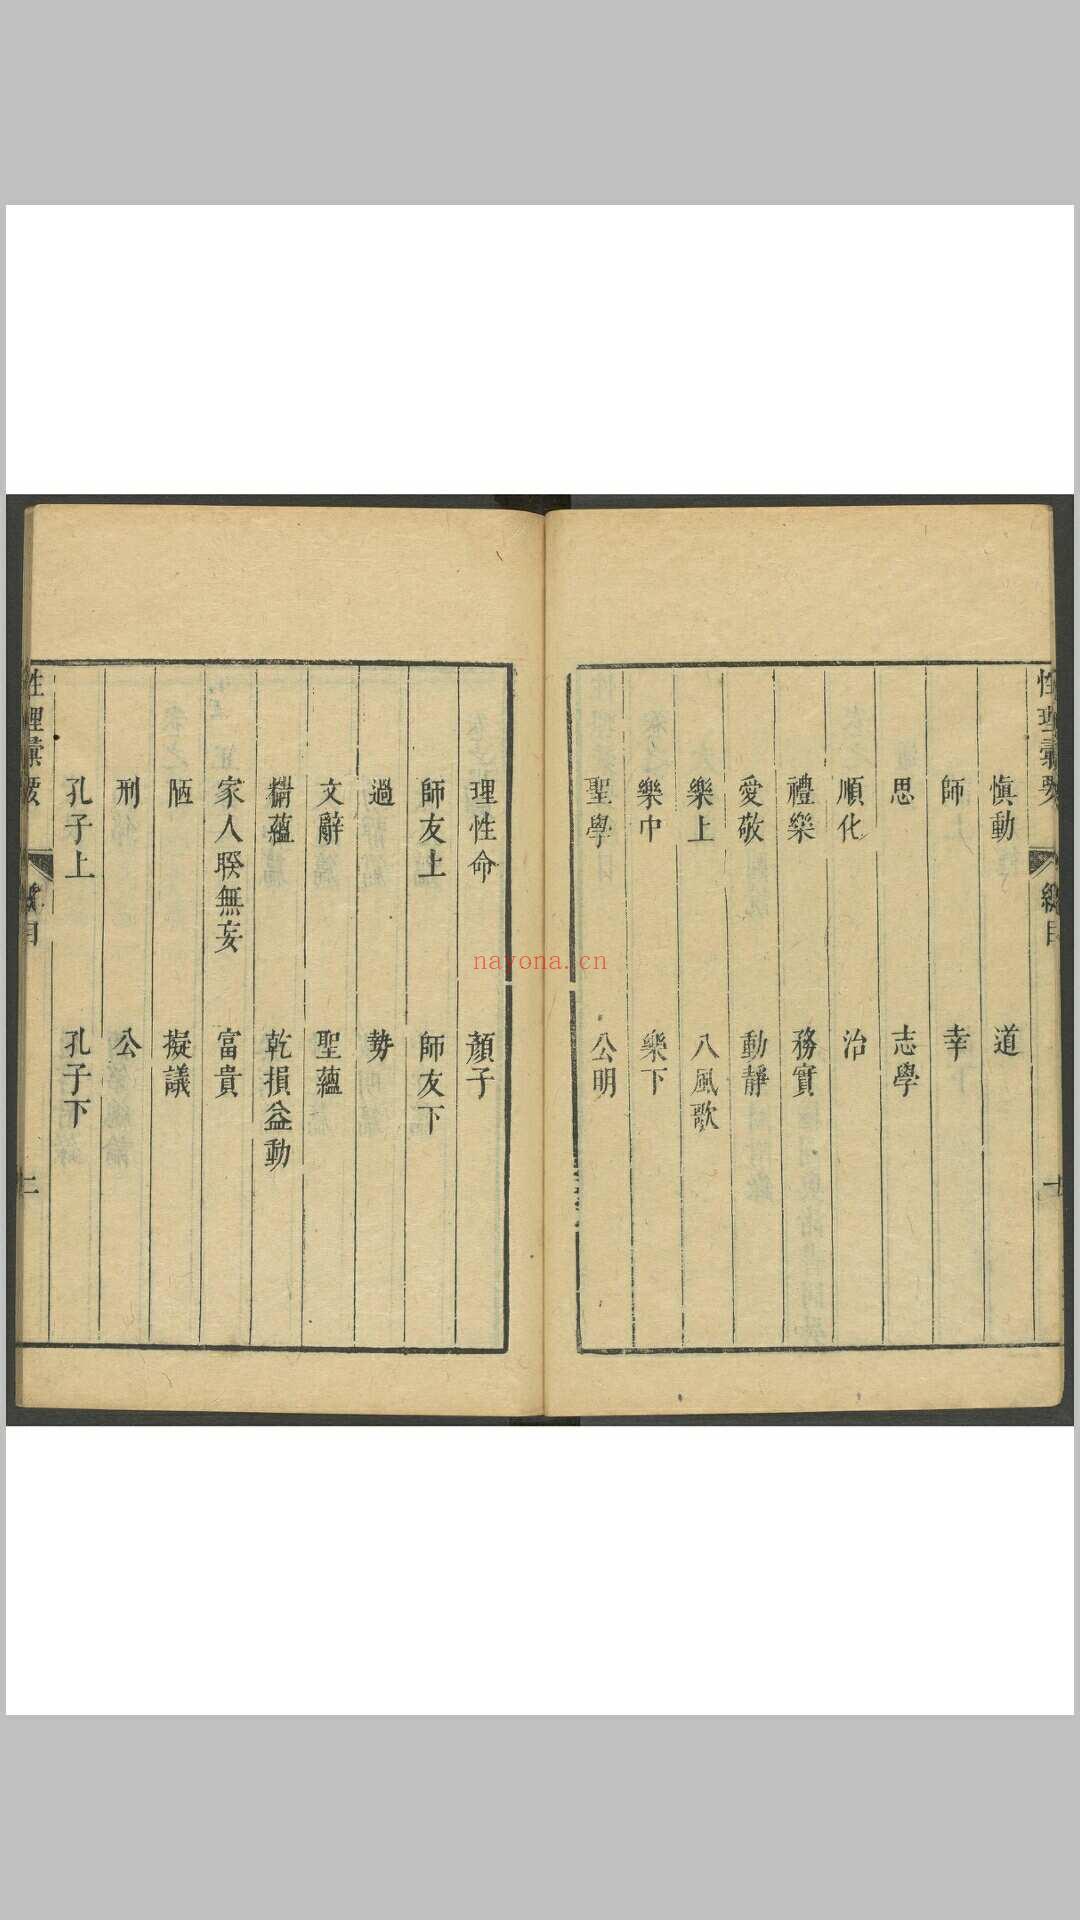 性理彙要
總目
慎動 道
師 幸
思 志學
順化 治
禮樂 務實
愛敬 動靜
樂上 八風歌
樂中 樂下
聖學 公明
理性命 顏子
師友上 師友下
過 勢
文辭 聖蘊
精蘊 乾損益動
家人睽無妄 富貴
陋 擬議
刑 公
孔子上 孔子下
性理彙要
總目
二
nayona.cn